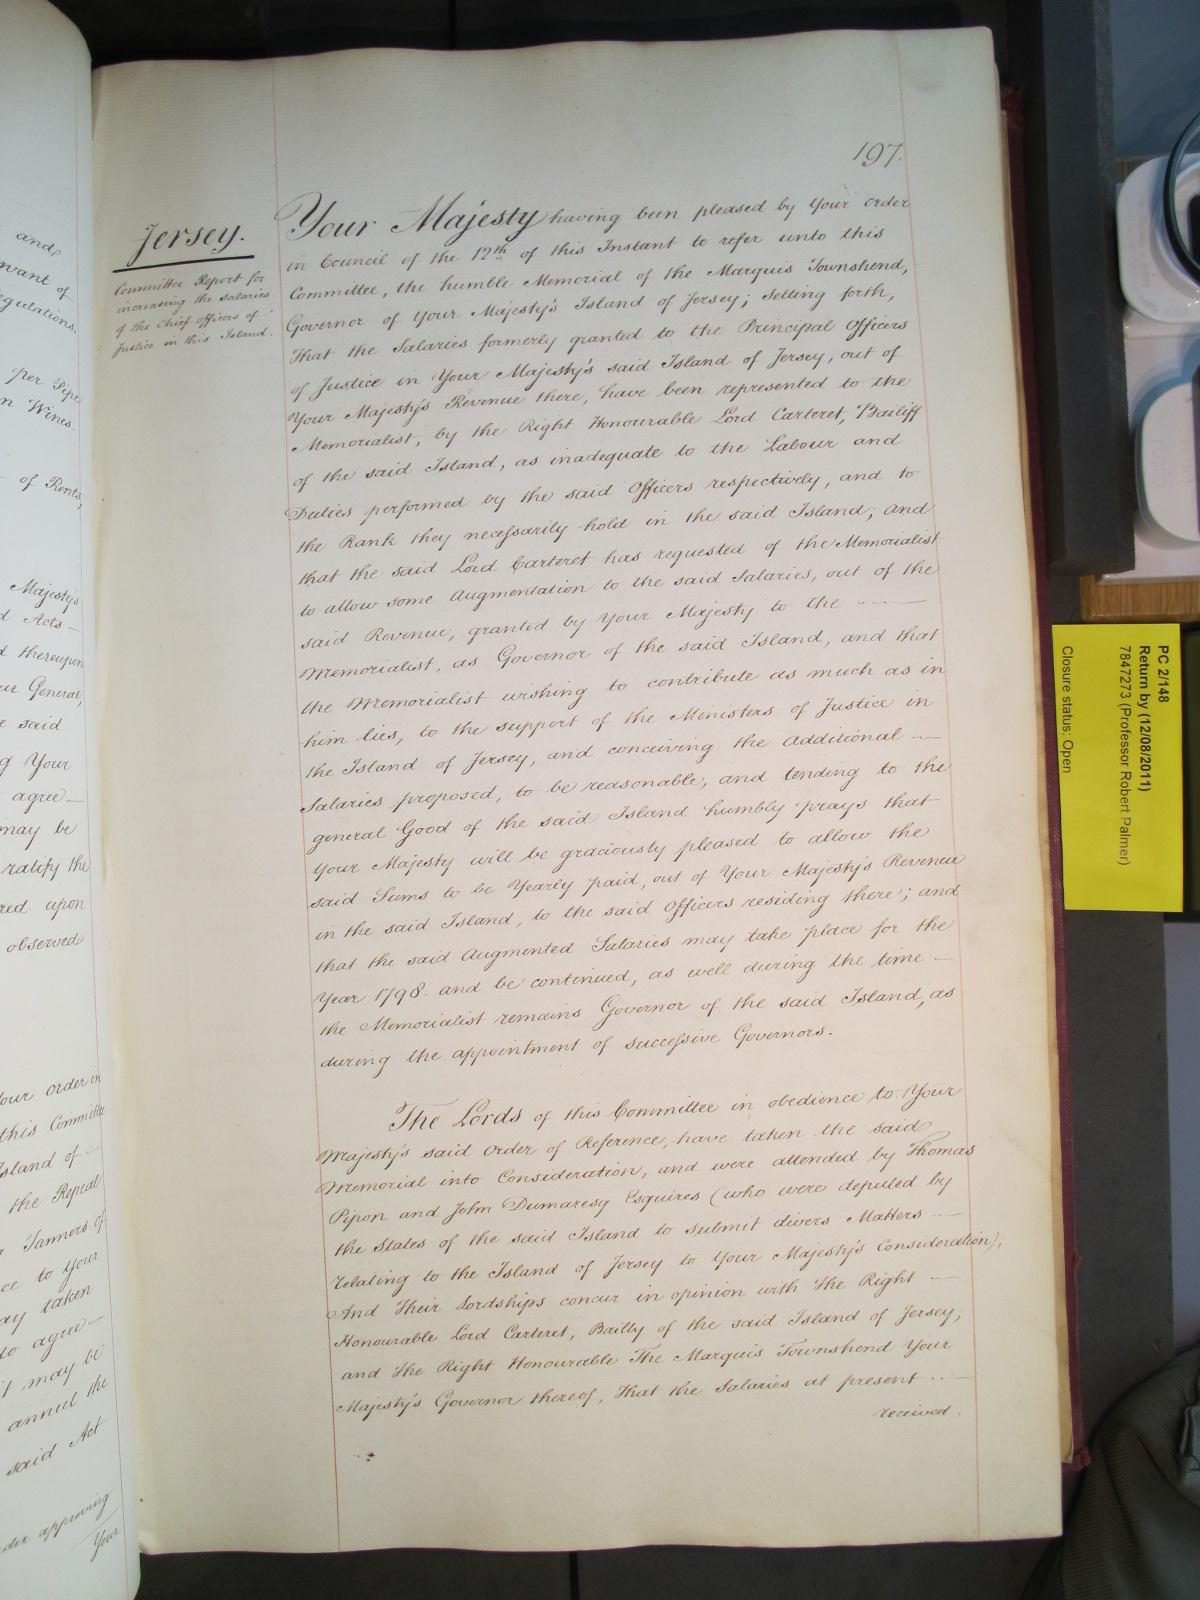 and
want of
regulations.
per Pipe
n Wines.
of Rents,
Majesty's
d Acts —
d thereupon
ur General,
e said
g Your
agree —
may be
ratify the
red upon
observed
Your Order in
this Committee
Island of —
the Repeal
Tanners of
ce to your
ay taken
to agree —
it may be
annul the
said Act
der approving
Your
197.
Jersey.
Committee Report for
increasing the Salaries
of the Chief Officers of -
Justice in this Island.
Your Majesty having been pleased by Your Order
in Council of the 12th of this Instant to refer unto this
Committee, the humble Memorial of the Marquis Townshend,
Governor of Your Majesty's Island of Jersey; Setting forth,
That the Salaries formerly granted to the Principal Officers
of Justice in Your Majesty's said Island of Jersey, out of
Your Majesty's Revenue there, have been represented to the
Memorialist, by the Right Honourable Lord Carteret, Bailiff
of the said Island, as inadequate to the Labour and
Duties performed by the said Officers respectively, and to
the Rank they necessarily hold in the said Island; and
that the said Lord Carteret has requested of the Memorialist
to allow some Augmentation to the said Salaries, out of the
said Revenue, granted by Your Majesty to the —
Memorialist, as Governor of the said Island, and that
the Memorialist wishing to contribute as much as in
him lies, to the support of the Ministers of Justice in
the Island of Jersey, and conceiving the Additional —
Salaries proposed, to be reasonable, and tending to the
general Good of the said Island humbly prays that
Your Majesty will be graciously pleased to allow the
said Sums to be Yearly paid, out of Your Majesty's Revenue
in the said Island, to the said Officers residing there; and
that the said Augmented Salaries may take place for the
Year 1798. and be continued, as well during the time —
the Memorialist remains Governor of the said Island, as
during the appointment of successive Governors.
The Lords of this Committee in obedience to Your
Majesty's said Order of Reference, have taken the said
Memorial into Consideration, and were attended by Thomas
Pipon and John Dumaresq Esquires (who were deputed by
the States of the said Island to submit divers Matters —
relating to the Island of Jersey to Your Majesty's Consideration);
And Their Lordships concur in opinion with the Right —
Honourable Lord Carteret, Bailly of the said Island of Jersey,
and the Right Honourable The Marquis Townshend Your
Majesty's Governor thereof, That the Salaries at present —
received.
PC 2/148
Return by (12/08/2011)
7847273 (Professor Robert Palmer)
Closure status: Open